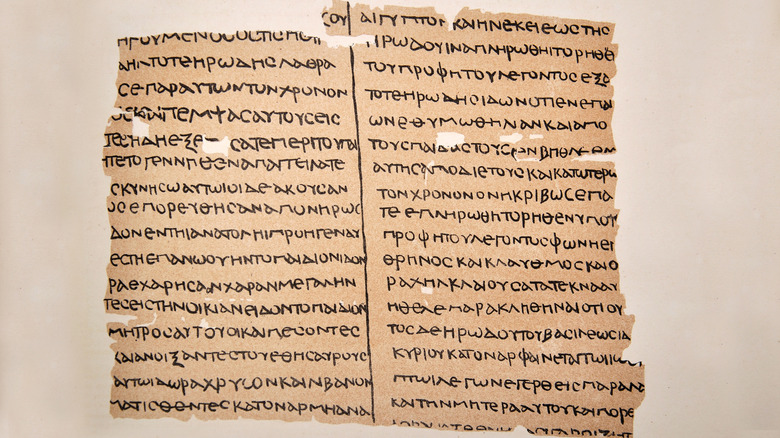 ϹΟΥ
ΗΓΟΥΜΕΝΟϹΟϹΤΙϹ
ΑΗΛΤΟΤΕΗΡΩΔΗϹΛΑΘΡΑ
ϹΕΠΑΡΑΥΤΩΝΤΟΝΧΡΟΝΟΝ
ΟϹΚΑΙΠΕΜΨΑϹΑΥΤΟΥϹΕΙϹ
ΤΕϹΗΔΗΕΞΕ ϹΑΤΕΠΕΡΙΤΟΥΠΑΙ
ΠΕΤΟΓΕΝΝΗΘΕΝΑΠΑΓΓΕΙΛΑΤΕ
ϹΚΥΝΗϹΩΑΥΤΩΙΟΙΔΕΑΚΟΥϹΑΝ
ΟϹΕΠΟΡΕΥΘΗϹΑΝΑΠΩΝΗΡΩϹ
ΔΟΝΕΝΤΗΙΑΝΑΤΟΛΗΙΠΡΟΗΓΕΝΑΥ
ΕϹΤΗΕΠΑΝΩΟΥΗΝΤΟΠΑΙΔΙΟΝΙΔΟΝ
ΡΑΕΧΑΡΗϹΑΝΧΑΡΑΝΜΕΓΑΛΗΝ
ΤΕϹΕΙϹΤΗΝΟΙΚΙΑΝΕΙΔΟΝΤΟΠΑΙΔΙΟΝ
ΜΗΤΡΟϹΑΥΤΟΥΟΙΚΑΙΠΕϹΟΝΤΕϹ
ΚΑΙΑΝΟΙΞΑΝΤΕϹΤΟΥϹΘΗϹΑΥΡΟΥϹ
ΑΥΤΩΙΔΩΡΑΧΡΥϹΟΝΚΑΙΝΒΑΝΟΝ
ΜΑΤΙϹΘΕΝΤΕϹΚΑΤΟΝΑΡΜΗΑΝΑ
ΑΙΓΥΠΤΟΥΚΑΙΗΝΕΚΕΙΕΩϹΤΗϹ
ΗΡΩΔΟΥΙΝΑΠΛΗΡΩΘΗΙΤΟΡΗΘΕ
ΤΟΥΠΡΟΦΗΤΟΥΛΕΓΟΝΤΟϹΕΞΑ
ΤΟΤΕΗΡΩΔΗϹΙΔΩΝΟΤΙΕΝΕΠΑΙ
ΩΝΕΘΥΜΩΘΗΛΙΑΝΚΑΙΑΠΟ
ΤΟΥϹΠΑΙΔΑϹΤΟΥϹΕΝΒΗΘΛΕΕΜ
ΑΥΤΗϹΑΠΟΔΙΕΤΟΥϹΚΑΙΚΑΤΩΤΕΡΩ
ΤΟΝΧΡΟΝΟΝΟΝΗΚΡΙΒΩϹΕΠΑ
ΤΕΕΠΛΗΡΩΘΗΤΟΡΗΘΕΝΥΠΟΙ
ΠΡΟΦΗΤΟΥΛΕΓΟΝΤΟϹΦΩΝΗΕΙ
ΘΡΗΝΟϹΚΑΙΚΛΑΥΘΜΟϹΚΑΙΟ
ΡΑΧΗΛΚΛΑΙΟΥϹΑΤΑΤΕΚΝΑΑΥ
ΗΘΕΛΕΠΑΡΑΚΛΗΘΗΝΑΙΟΤΙΟΥ
ΤΟϹΔΕΗΡΩΔΟΥΤΟΥΒΑϹΙΛΕΩϹΙΔ
ΚΥΡΙΟΥΚΑΤΟΝΑΡΦΑΙΝΕΤΑΙΤΩΙΙΩ
ΠΤΩΙΛΕΓΩΝΕΓΕΡΘΕΙϹΠΑΡΑΛΑ
ΚΑΙΤΗΝΜΗΤΕΡΑΑΥΤΟΥΚΑΙΠΟΡΕ